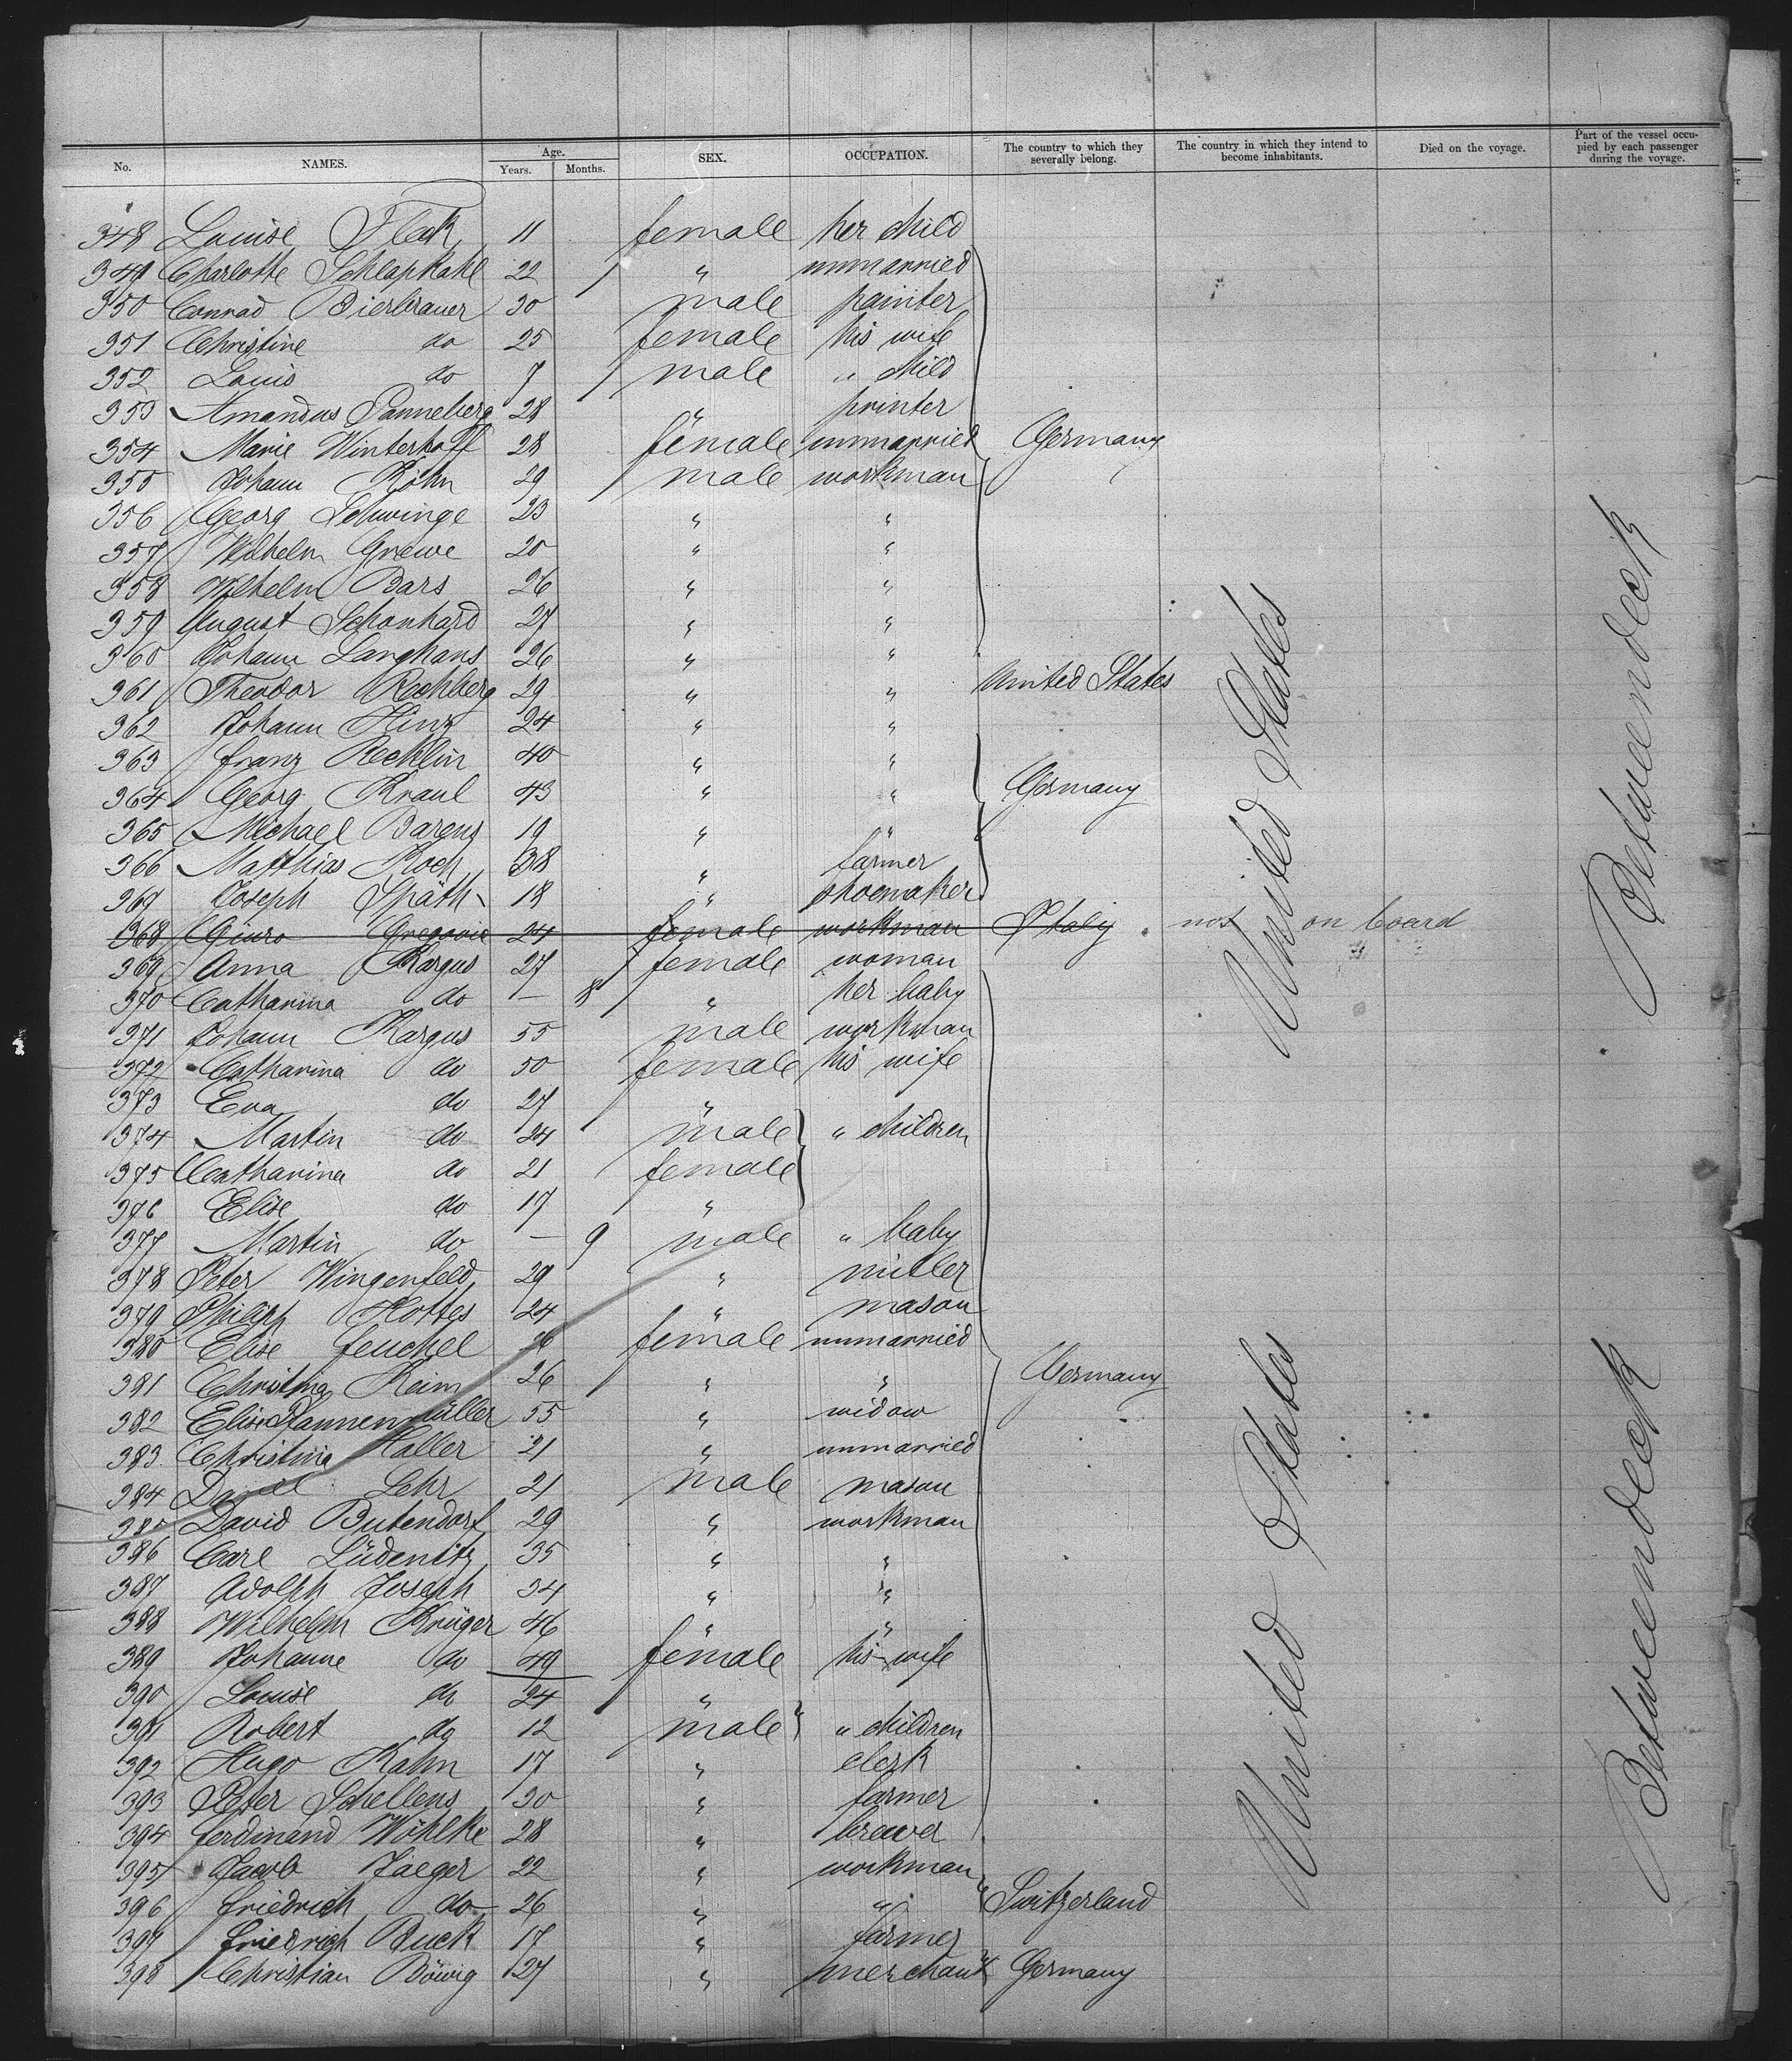 No. NAMES. Age. Years. Months. SEX. OCCUPATION. The country to which they severally belong. The country in which they intend to become inhabitants. Died on the voyage. Part of the vessel occupied by each passenger during the voyage.
348 Louise Fleck 11 female her child
349 Charlotte Schlapkahl 22 " unmarried
350 Conrad Bierbrauer 30 male painter
351 Christine do 25 female his wife
352 Louis do 7 male " child
353 Amandus Panneberg 28 " printer
354 Marie Winterhoff 28 female unmarried Germany
355 Johann Köhn 29 male workman
356 Georg Schwinge 23 " "
357 Wilhelm Grewe 20 " "
358 Wilhelm Bars 26 " "
359 August Schonhard 27 " "
360 Johann Langhans 26 " "
361 Theodor Rechberg 29 " " United States
362 Johann Hinz 24 " "
363 Franz Recklin 40 " "
364 Georg Kraul 43 " " Germany
365 Michael Barenz 19 " "
366 Matthias Koch 38 " farmer
367 Joseph Späth 18 " shoemaker
368 Giuro Gregovic 24 female workman Italy not on board
369 Anna Kargus 27 female woman
370 Catharina do — 8 " her baby
371 Johann Kargus 55 male workman
372 Catharina do 50 female his wife
373 Eva do 27 "
374 Martin do 24 male " children
375 Catharina do 21 female
376 Elise do 17 "
377 Martin do — 9 male " baby
378 Peter Wingenfeld 29 " miller
379 Philipp Hottes 24 " mason
380 Elise Feuchel 26 female unmarried
381 Christina Keim 26 " " Germany
382 Elise Pfannenmüller 55 " widow
383 Christina Haller 21 " unmarried
384 Daniel Lehr 21 male mason
385 David Butendorf 29 " workman
386 Carl Lüdenitz 35 " "
387 Adolph Joseph 34 " "
388 Wilhelm Krüger 46 " "
389 Johanne do 49 female his wife
390 Louise do 24 "
391 Robert do 12 male " children
392 Hugo Kahn 17 " clerk
393 Peter Schellens 30 " farmer
394 Ferdinand Wöhlke 28 " brewer
395 Jacob Jaeger 22 " workman
396 Friedrich do 26 " " Switzerland
397 Friedrich Buck 17 " farmer
398 Christian Böwig 27 " merchant Germany
United States
Betweendeck
United States
Betweendeck